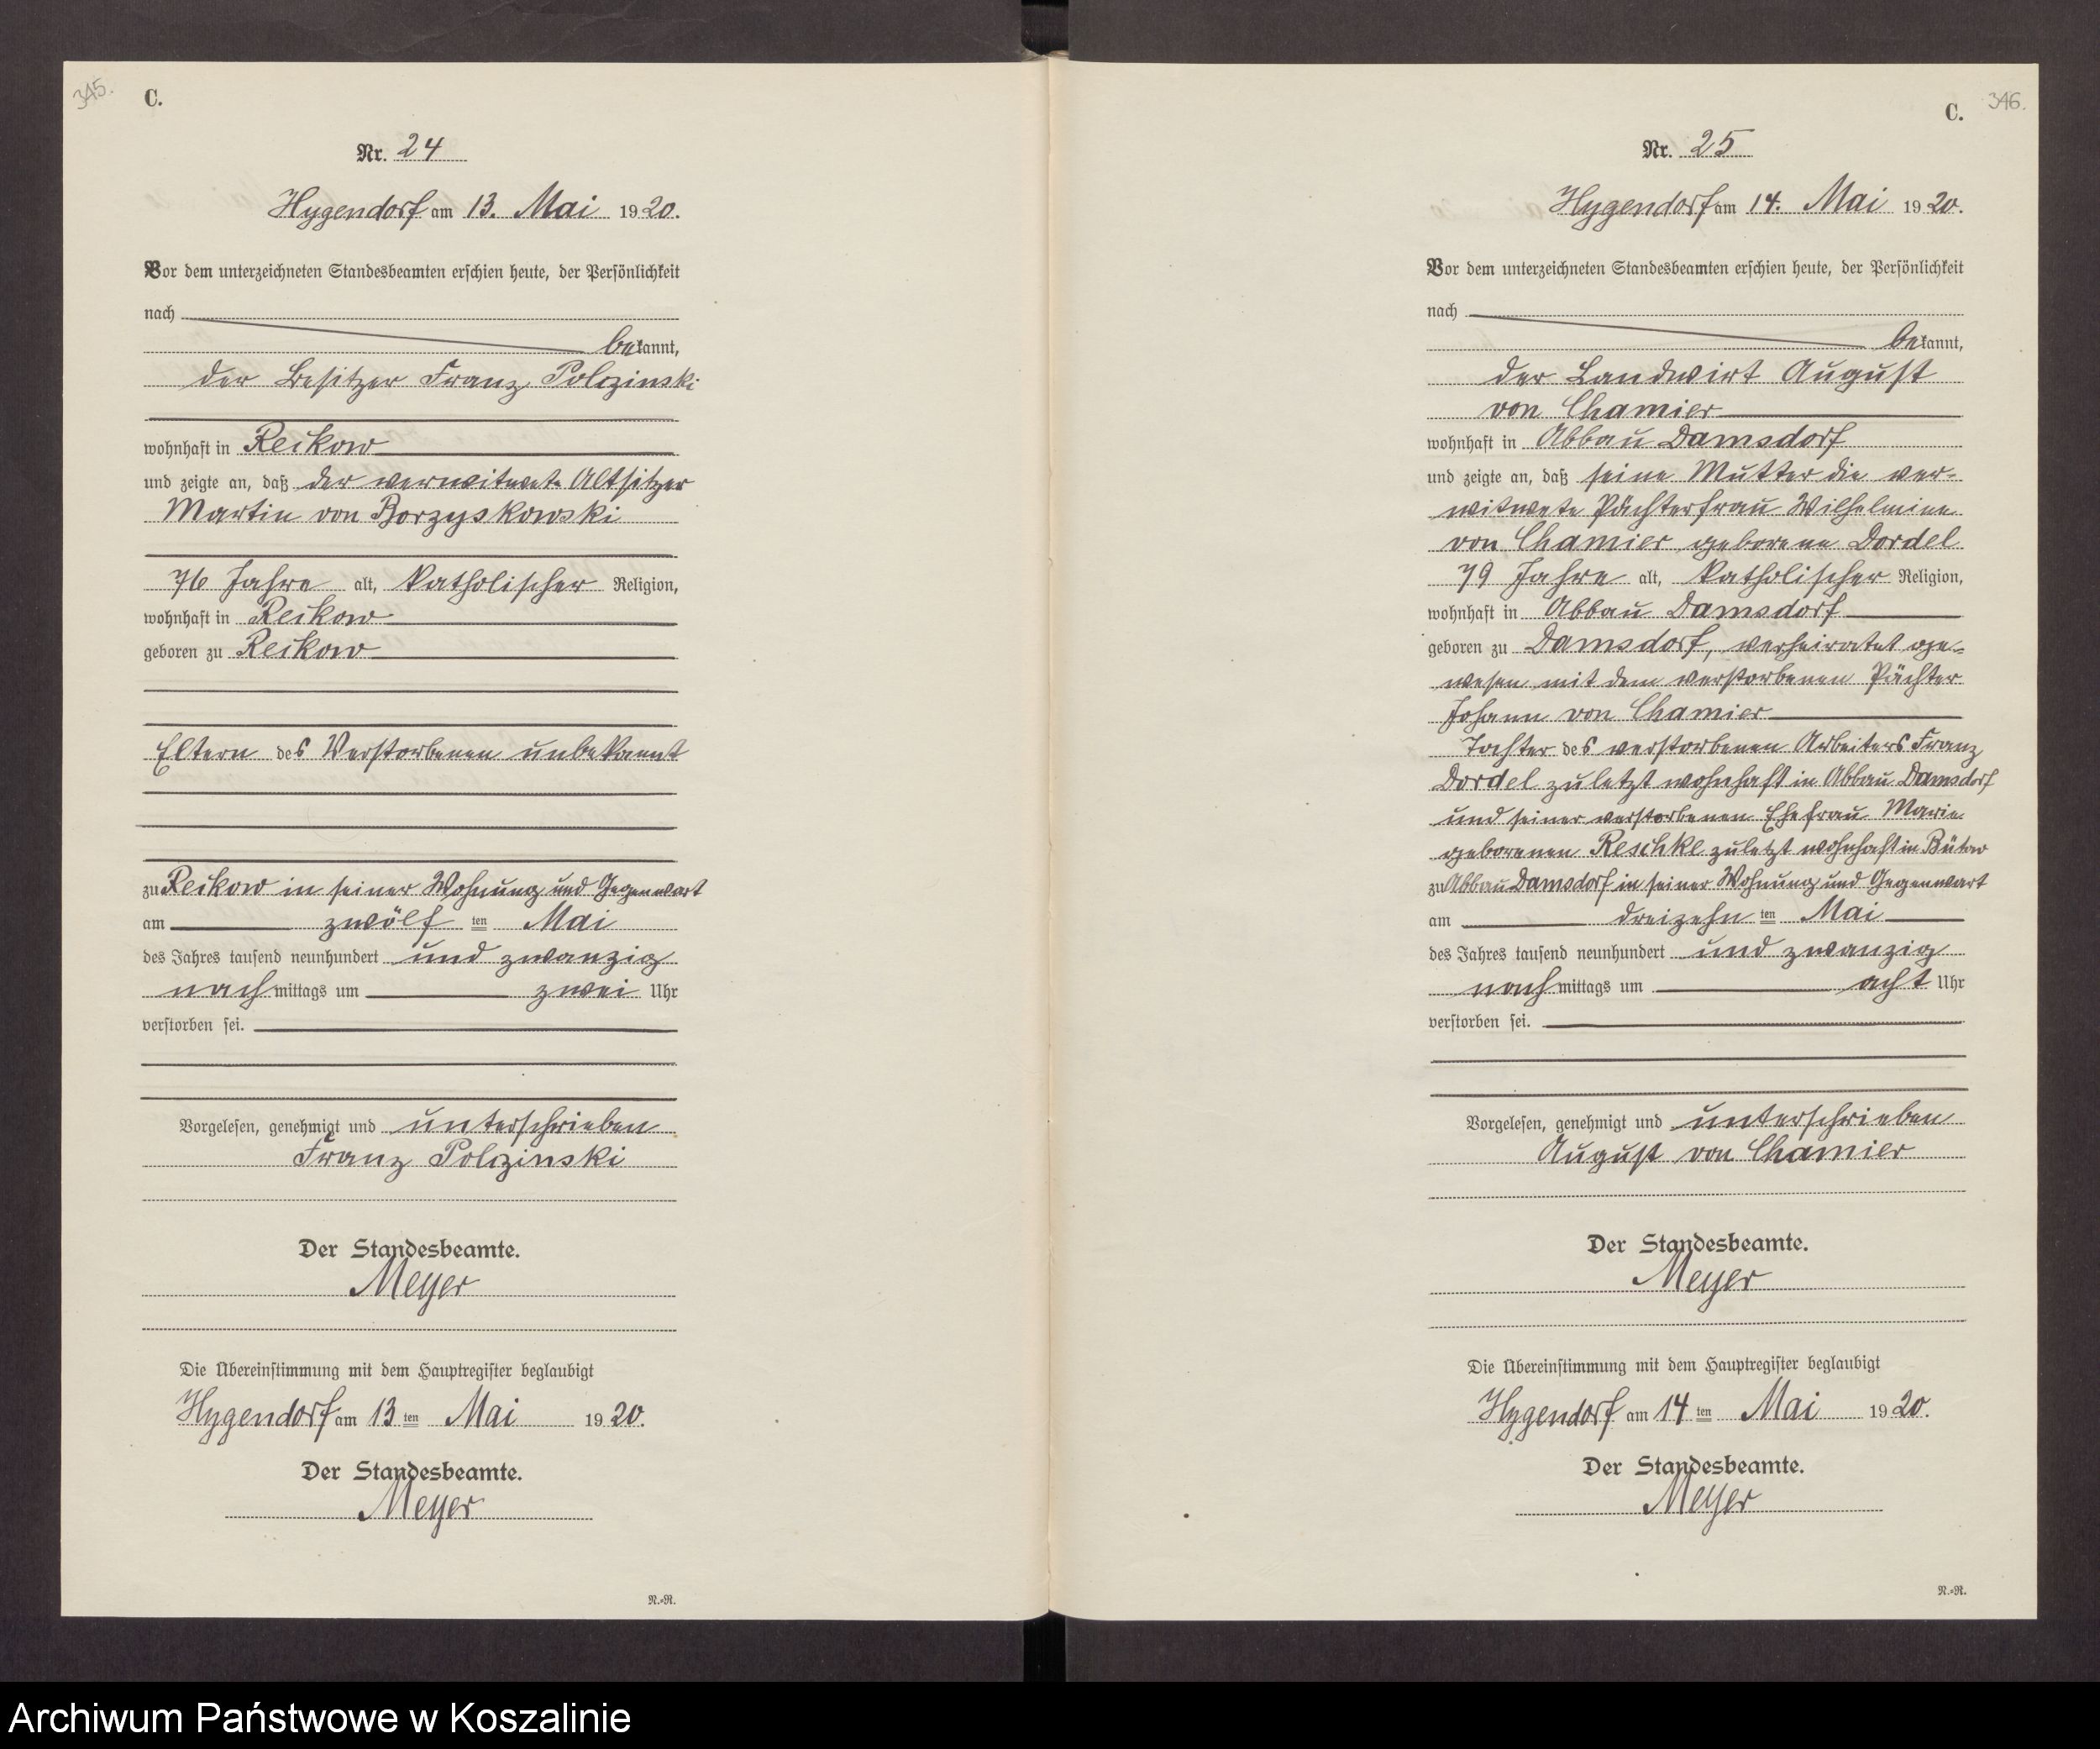 345.
C.
Nr. 24
Hygendorf am 13. Mai 1920.
Vor dem unterzeichneten Standesbeamten erschien heute, der Persönlichkeit
nach
bekannt,
der Besitzer Franz Polczinski
wohnhaft in Reikow
und zeigte an, daß der verwitwete Altsitzer
Martin von Borzyskowski
76 Jahre alt, katholischer Religion,
wohnhaft in Reikow
geboren zu Reikow
Eltern des Verstorbenen unbekannt
zu Reikow in seiner Wohnung und Gegenwart
am zwölf ten Mai
des Jahres tausend neunhundert und zwanzig
nachmittags um zwei Uhr
verstorben sei.
Vorgelesen, genehmigt und unterschrieben
Franz Polczinski
Der Standesbeamte.
Meyer
Die Übereinstimmung mit dem Hauptregister beglaubigt
Hygendorf am 13 ten Mai 1920.
Der Standesbeamte.
Meyer
N.-R.
346.
C.
Nr. 25
Hygendorf am 14. Mai 1920.
Vor dem unterzeichneten Standesbeamten erschien heute, der Persönlichkeit
nach
bekannt,
der Landwirt August
von Chamier
wohnhaft in Abbau Damsdorf
und zeigte an, daß seine Mutter die ver-
witwete Pächterfrau Wilhelmine
von Chamier geborene Dordel
79 Jahre alt, katholischer Religion,
wohnhaft in Abbau Damsdorf
geboren zu Damsdorf, verheiratet ge-
wesen mit dem verstorbenen Pächter
Johann von Chamier
Tochter des verstorbenen Arbeiters Franz
Dordel zuletzt wohnhaft in Abbau Damsdorf
und seiner verstorbenen Ehefrau Marie
geborenen Reschke zuletzt wohnhaft in Bütow
zu Abbau Damsdorf in seiner Wohnung und Gegenwart
am dreizehn ten Mai
des Jahres tausend neunhundert und zwanzig
nachmittags um acht Uhr
verstorben sei.
Vorgelesen, genehmigt und unterschrieben
August von Chamier
Der Standesbeamte.
Meyer
Die Übereinstimmung mit dem Hauptregister beglaubigt
Hygendorf am 14 ten Mai 1920.
Der Standesbeamte.
Meyer
N.-R.
Archiwum Państwowe w Koszalinie